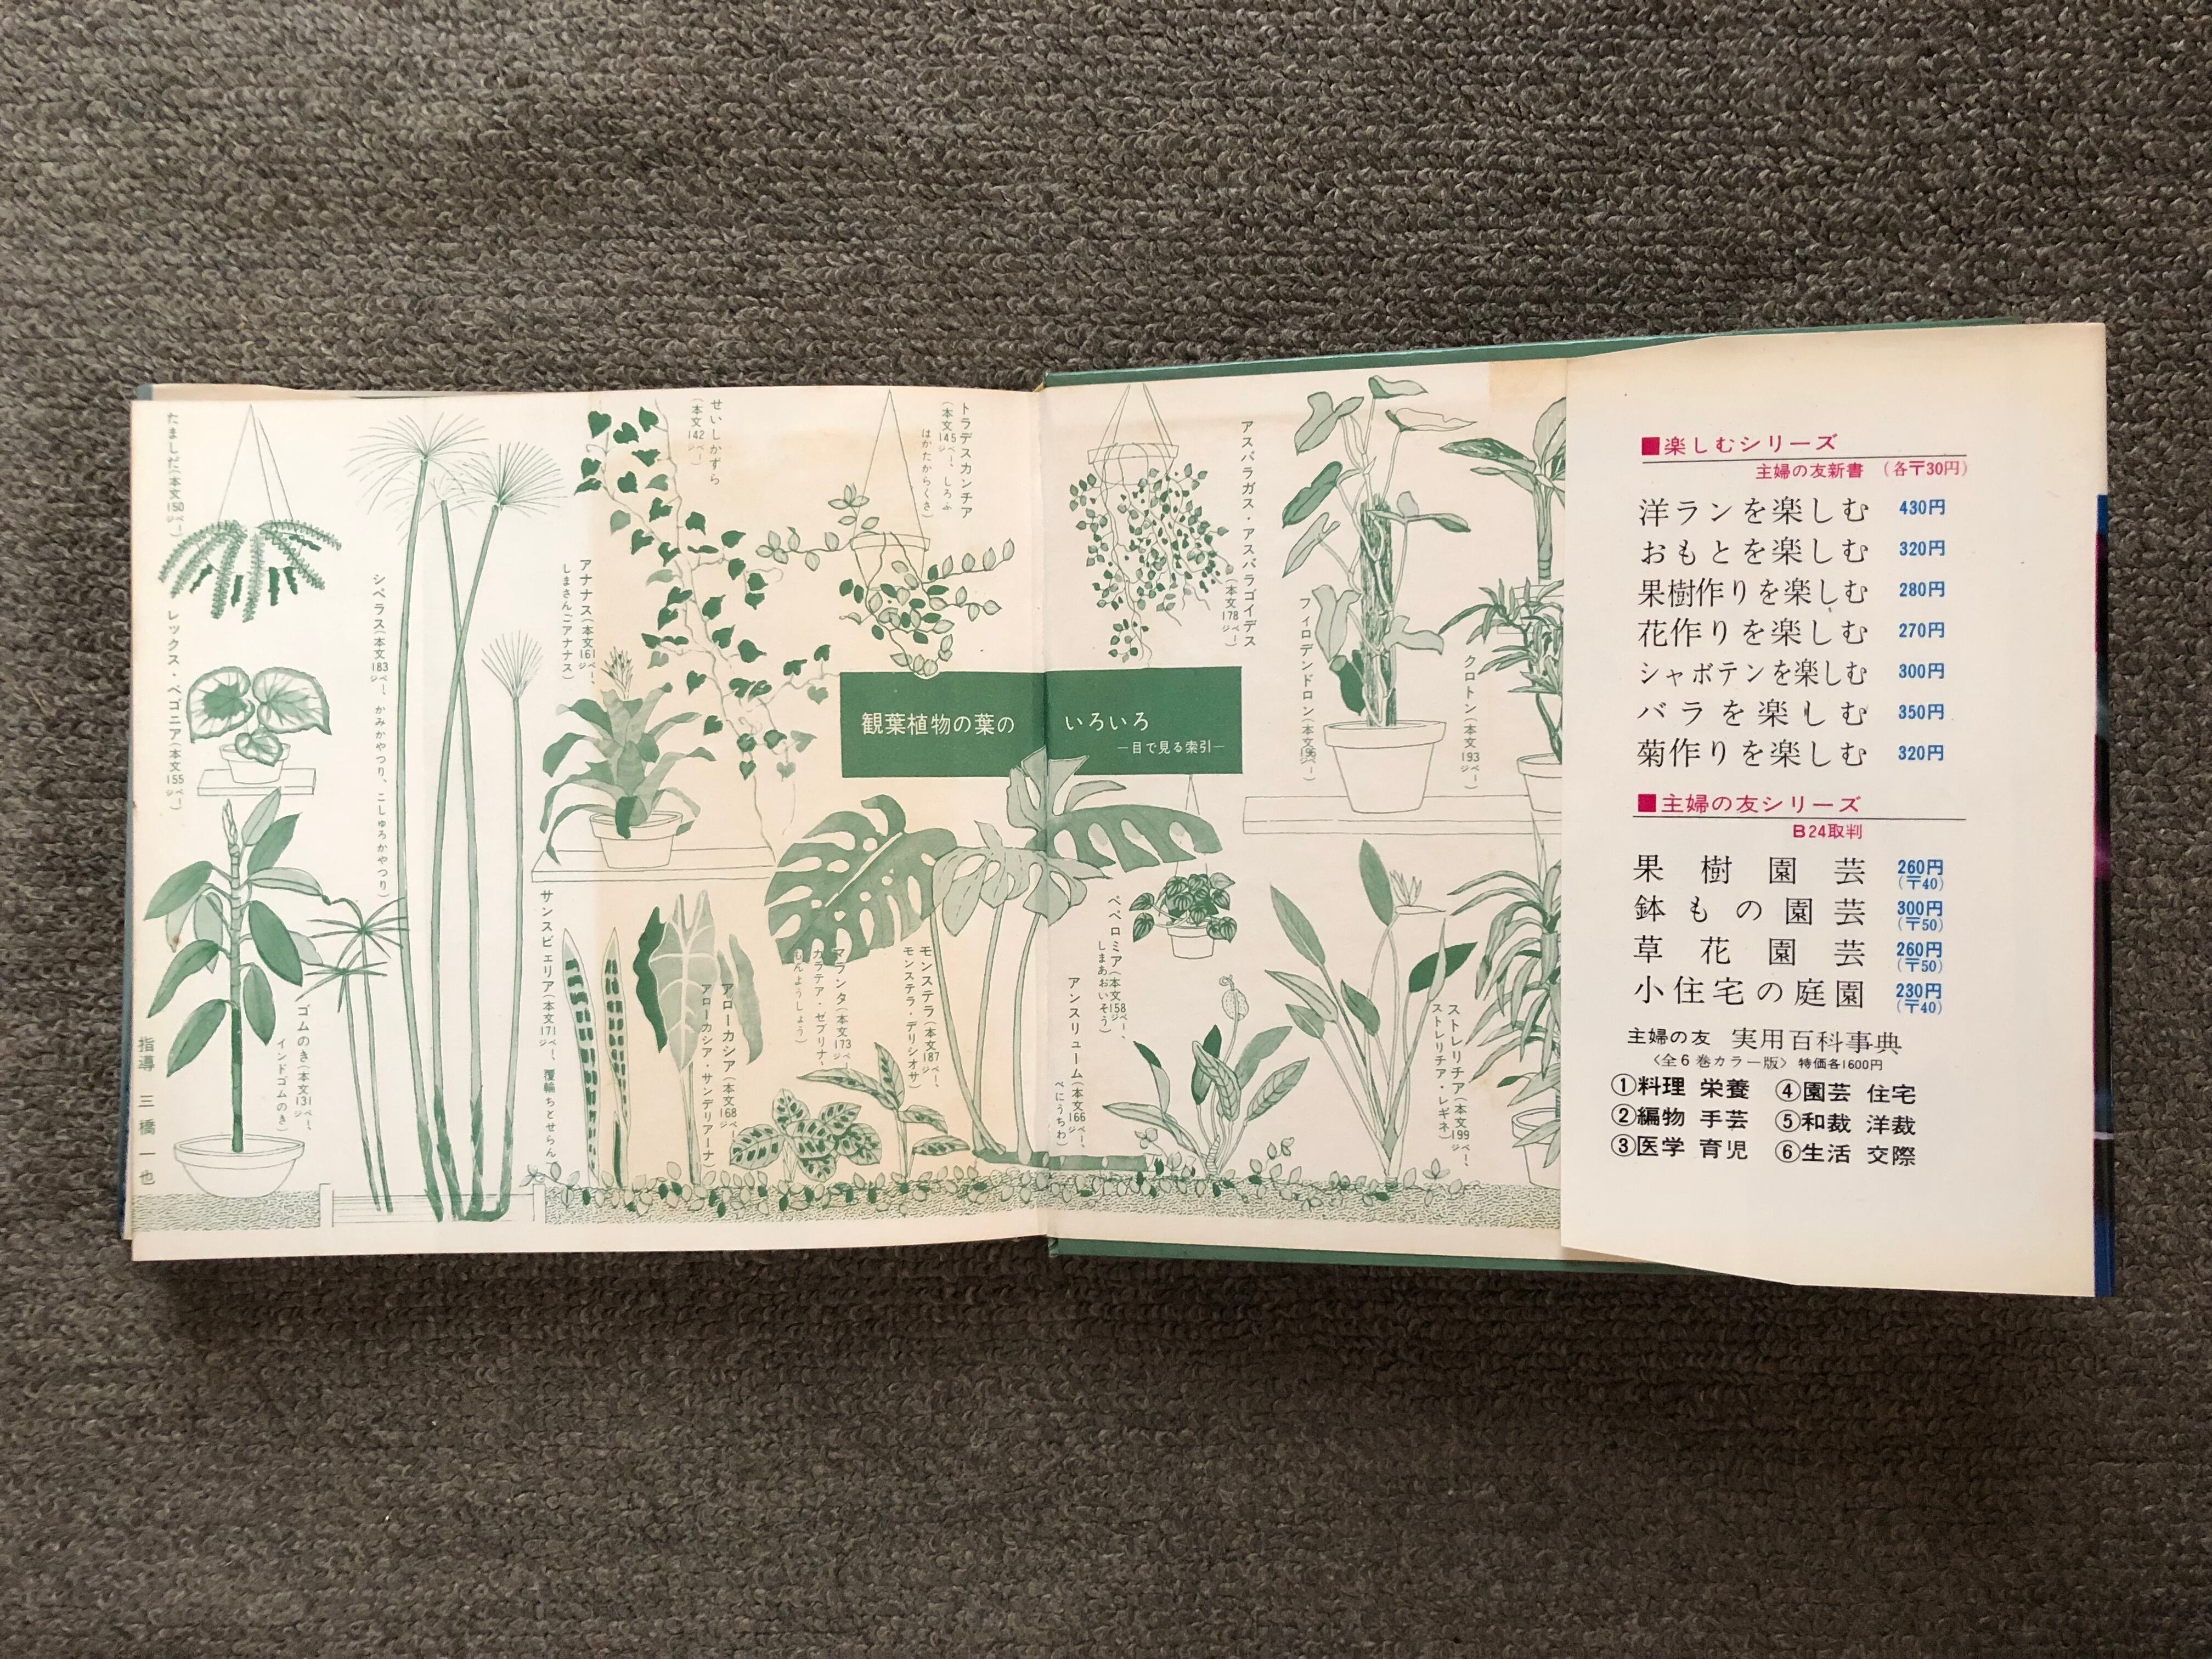 たましだ(本文150ページ)
レックス・ベゴニア(本文155ページ)
指導 三橋一也
ゴムのき(本文131ページ、
インドゴムのき)
シペラス(本文183ページ、かみかやつり、こしゅろかやつり)
アナナス(本文161ページ、
しまさんごアナナス)
せいしかずら
(本文142ページ)
トラデスカンチア
(本文145ページ、しろふ
はかたからくさ)
サンスビェリア(本文171ページ、覆輪ちとせらん)
アローカシア(本文168ページ、
アローカシア・サンデリアーナ)
マランタ(本文173ページ、
カラテア・ゼブリナ、
もんようしょう)
モンステラ(本文187ページ、
モンステラ・デリシオサ)
観葉植物の葉の いろいろ
—目で見る索引—
アスパラガス・アスパラゴイデス
(本文178ページ)
フィロデンドロン(本文196ページ)
クロトン(本文193ページ)
ペペロミア(本文158ページ、
しまあおいそう)
アンスリューム(本文166ページ、
べにうちわ)
ストレリチア(本文199ページ、
ストレリチア・レギネ)
■楽しむシリーズ
主婦の友新書 (各〒30円)
洋ランを楽しむ 430円
おもとを楽しむ 320円
果樹作りを楽しむ 280円
花作りを楽しむ 270円
シャボテンを楽しむ 300円
バラを楽しむ 350円
菊作りを楽しむ 320円
■主婦の友シリーズ
B24取判
果樹園芸 260円
(〒40)
鉢もの園芸 300円
(〒50)
草花園芸 260円
(〒50)
小住宅の庭園 230円
(〒40)
主婦の友 実用百科事典
〈全6巻カラー版〉特価各1600円
①料理 栄養 ④園芸 住宅
②編物 手芸 ⑤和裁 洋裁
③医学 育児 ⑥生活 交際